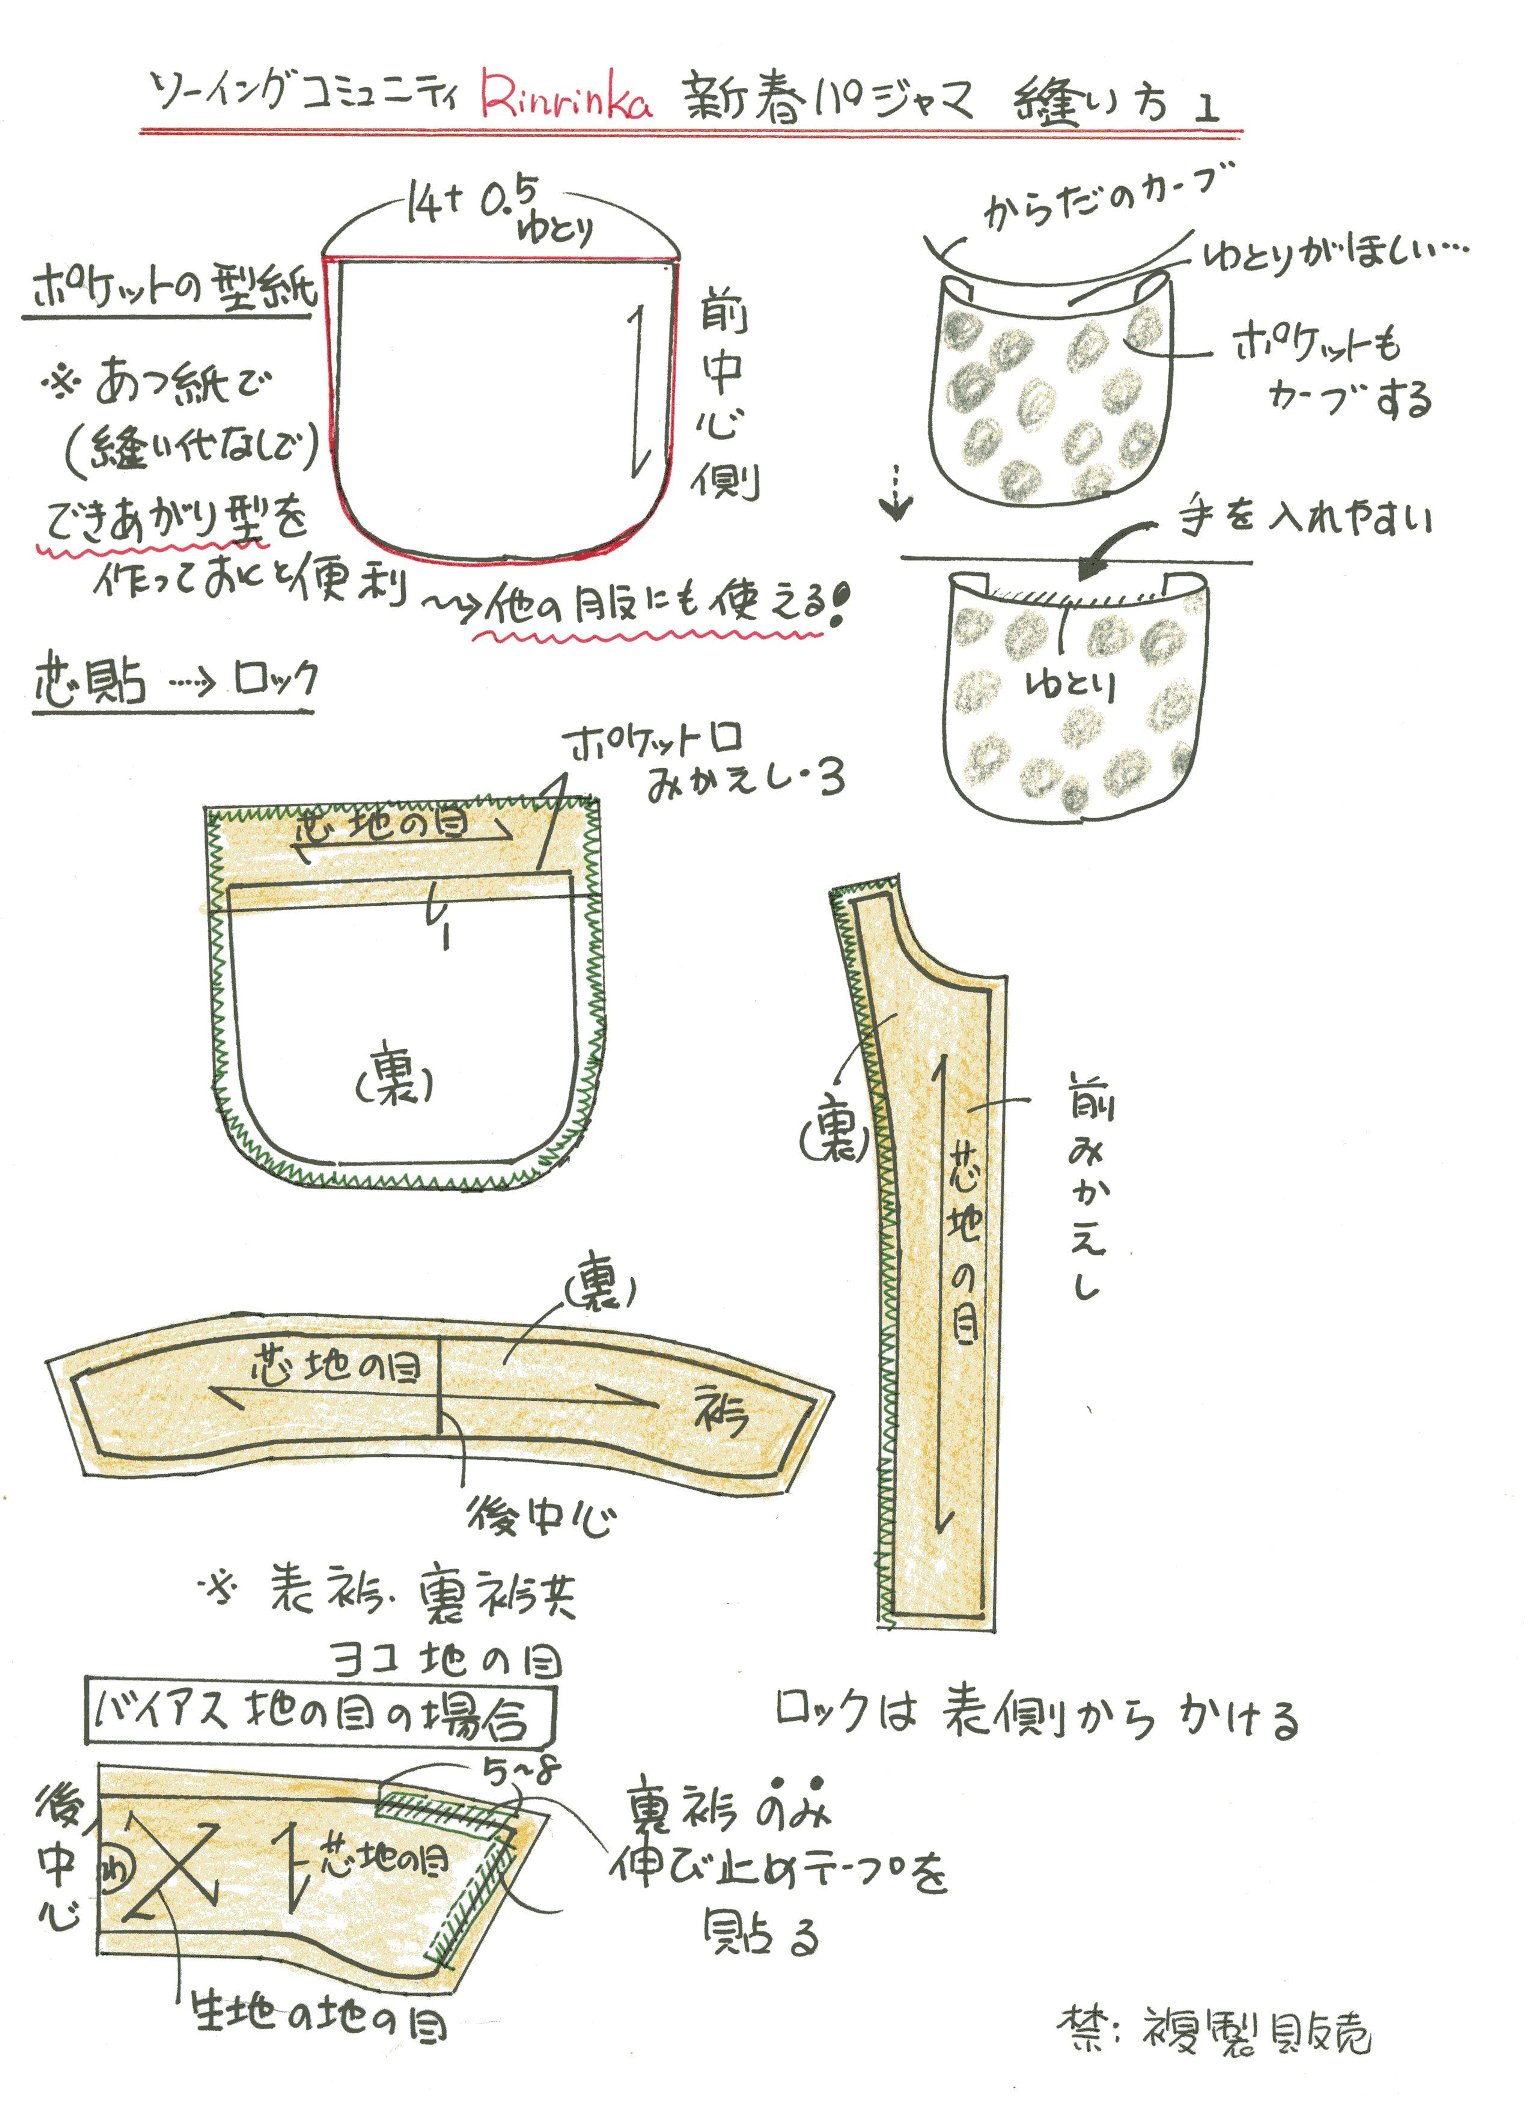 ソーイングコミュニティ Rinrinka 新春パジャマ 縫い方 1
14+0.5
ゆとり
ポケットの型紙
※ あつ紙で
(縫い代なしで)
できあがり型を
作っておくと便利
~~→他の服にも使える!
前中心側
からだのカーブ
ゆとりがほしい…
ポケットも
カーブする
手を入れやすい
ゆとり
芯貼 ····→ ロック
ポケット口
みかえし・3
芯地の目
1
(裏)
(裏)
芯地の目
前みかえし
(裏)
芯地の目
衿
後中心
※ 表衿・裏衿共
ヨコ地の目
バイアス地の目の場合
ロックは表側からかける
5~8
後中心
わ
芯地の目
裏衿のみ
伸び止めテープを
貼る
生地の地の目
禁:複製販売